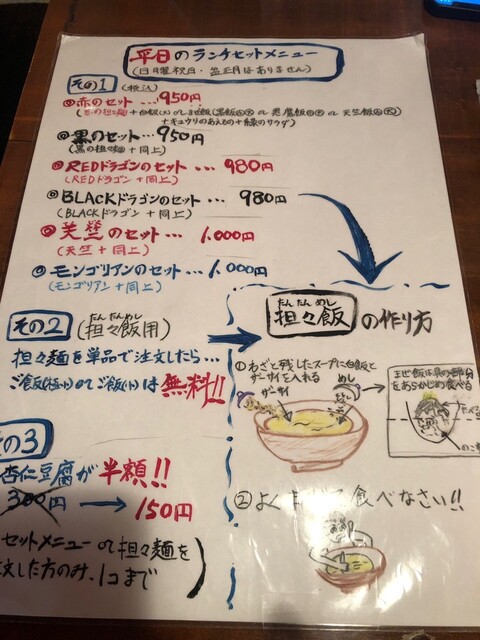 平日のランチセットメニュー
(日曜祝日・盆正月はありません)
その1 (税込)
◎赤のセット…950円
+キュウリのあえもの+豚のサラダ)
◎黒のセット…950円
(黒の担々麺+同上)
◎REDドラゴンのセット…980円
(REDドラゴン+同上)
◎BLACKドラゴンのセット…980円
(BLACKドラゴン+同上)
◎天竺のセット…1,000円
(天竺+同上)
◎モンゴリアンのセット…1,000円
(モンゴリアン+同上)
その2 (担々飯用)
たんたんめし
担々麺を単品で注文したら…
ご飯(小)は無料!!
その3
杏仁豆腐が半額!!
300円→150円
セットメニューor担々麺を
注文した方のみ、1コまで
たんたんめし
担々飯の作り方
①わざと残したスープに白飯と
ザーサイを入れる
ザーサイ
めし
まぜ飯は具の部分
をあらかじめ食べる
②よくまぜて食べなさい!!